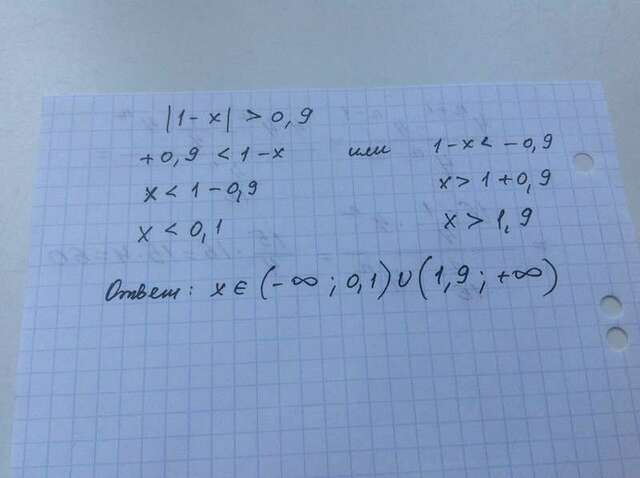 |1-x| > 0,9
+0,9 < 1-x или 1-x < -0,9
x < 1-0,9 x > 1+0,9
x < 0,1 x > 1,9
Ответ: x ∈ (-∞; 0,1) ∪ (1,9; +∞)